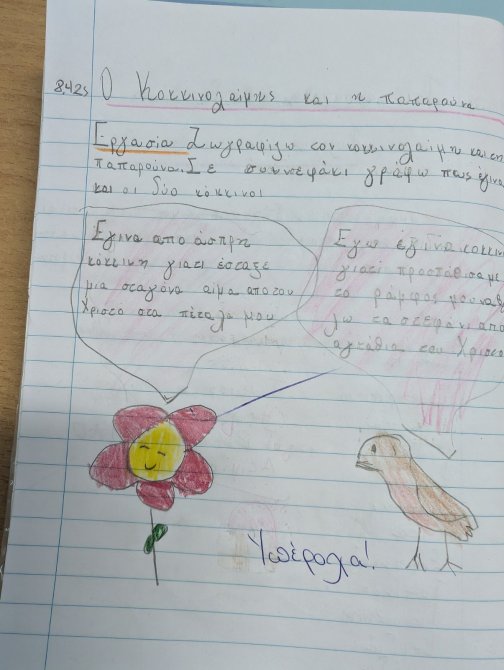 8.4.25 Ο Κοκκινολαίμης και η παπαρούνα
Εργασία Ζωγραφίζω τον κοκκινολαίμη και τη
παπαρούνα. Σε συννεφάκι γράφω πως έγινα
και οι δύο κόκκινοι
Έγινα απο άσπρη
κόκκινη γιατί έσταξε
μια σταγόνα αίμα απο τον
Χριστό στα πέταλα μου
Εγω έγινα κοκκιν
γιατί προσπάθησα με
το ράμφος μου να β
λω τα στεφάνι απο
αγκάθια του Χριστο
Υπέροχα!